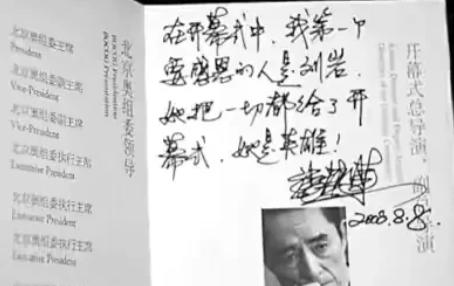 北京奥组委主席
President
北京奥组委副主席
Vice-President
北京奥组委副主席
Vice-President
北京奥组委执行主席
Executive President
北京奥组委执行主席
Executive President
北京奥组委执行主席
Executive President
北京奥组委领导
BOCOG Presentation
在开幕式中，我第一个
要感恩的人是刘岩，
她把一切都给了开
幕式，她是英雄！
2008.8.8.
开幕式总导演、副总导演